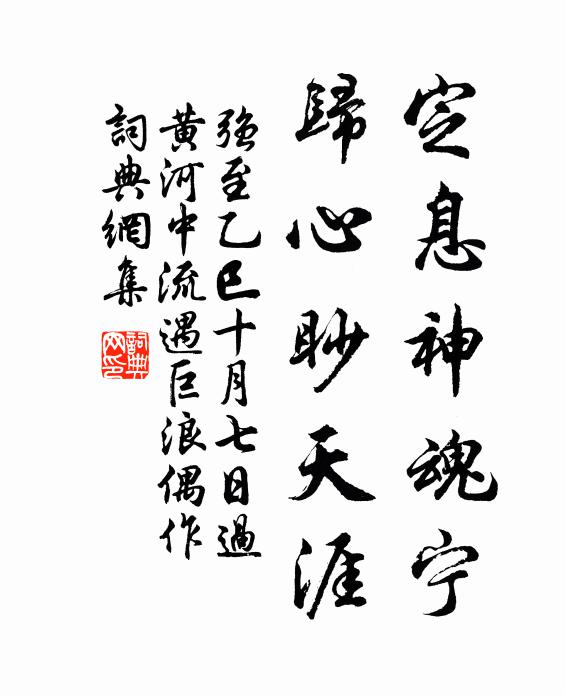 定息神魂宁
歸心眇天涯
強至乙巳十月七日過
黃河中流遇巨浪偶作
詞典網集
詞典网印